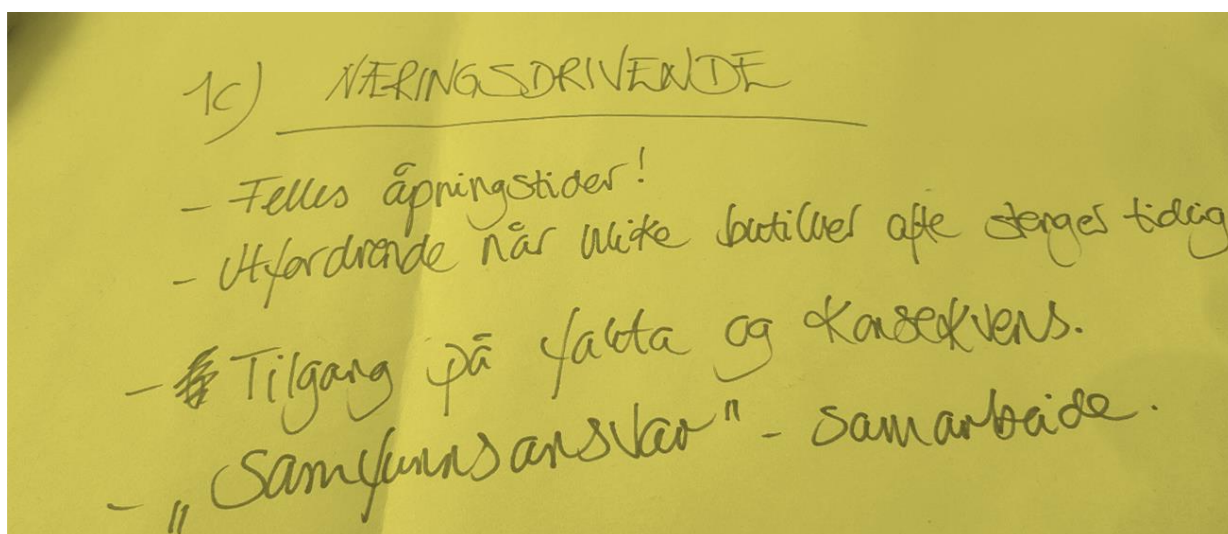 1c) NÆRINGSDRIVENDE
- Felles åpningstider!
- Utfordrende når ulike butikker ofte stenger tidlig
- Tilgang på fakta og konsekvens.
- „Samfunnsansvar" - samarbeide.